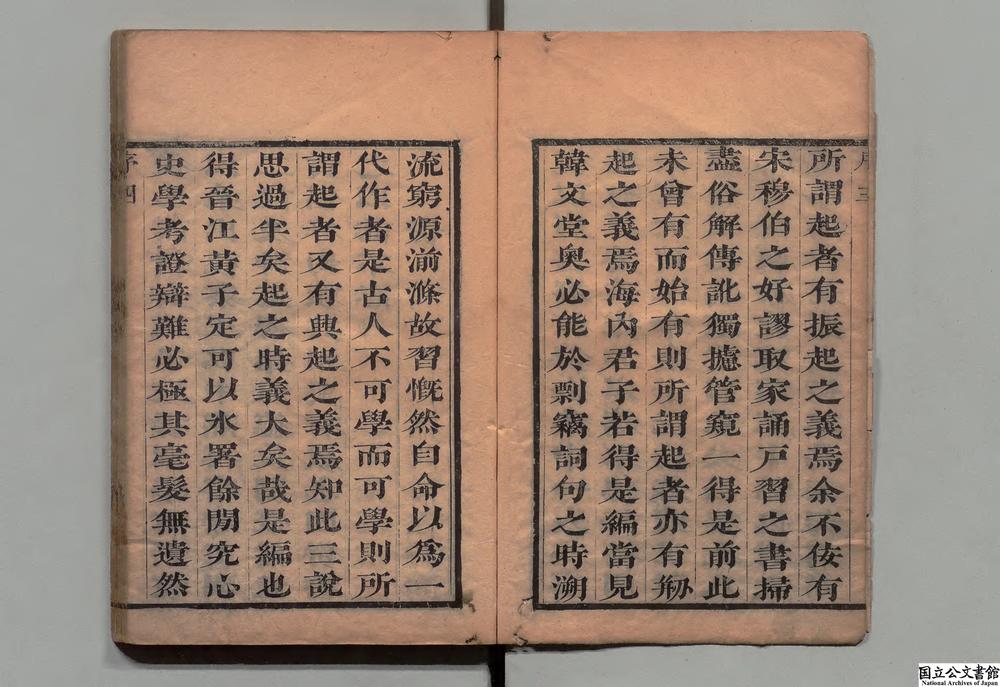 所謂起者有振起之義焉余不佞有
宋穆伯之好謬取家誦戸習之書掃
盡俗解傳訛獨攄管窺一得是前此
未曾有而始有則所謂起者亦有剏
起之義焉海內君子若得是編當見
韓文堂奥必能於剽竊詞句之時溯
流窮源湔滌故習慨然自命以為一
代作者是古人不可學而可學則所
謂起者又有興起之義焉知此三說
思過半矣起之時義大矣哉是編也
得晉江黃子定可以氷署餘閒究心
史學考證辯難必極其毫髮無遺然
序四
国立公文書館
National Archives of Japan